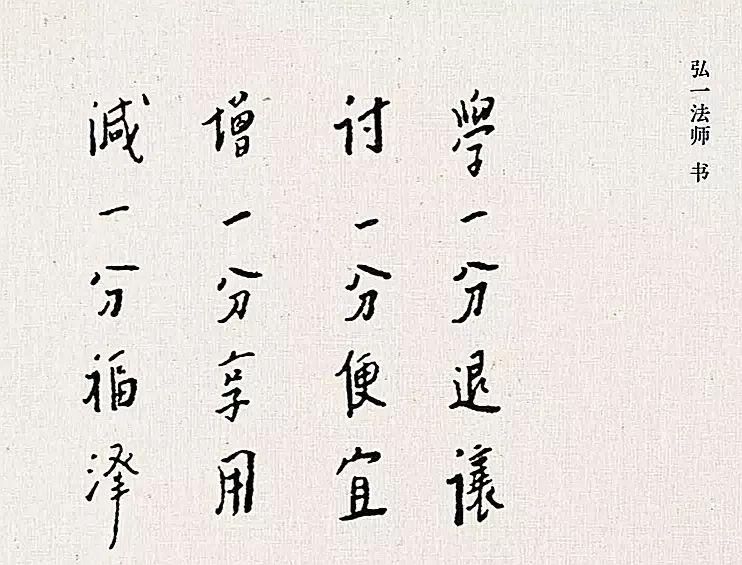 弘一法师 书
學一分退讓
討一分便宜
增一分享用
減一分福澤